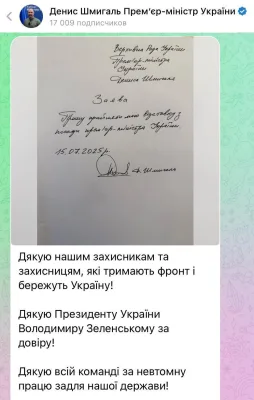 Денис Шмигаль Прем'єр-міністр України
17 009 подписчиков
Верховна Рада України
Прем'єр-міністра
України
Дениса Шмигаля
Заява
Прошу прийняти мою відставку з
посади прем'єр-міністра України
15.07.2025р.
Д. Шмигаль
Дякую нашим захисникам та
захисницям, які тримають фронт і
бережуть Україну!
Дякую Президенту України
Володимиру Зеленському за
довіру!
Дякую всій команді за невтомну
працю задля нашої держави!